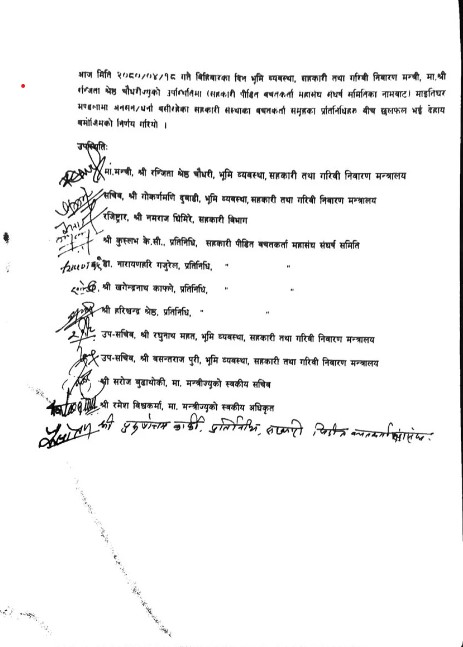 आज मिति २०८०/०४/१८ गते बिहिबारका दिन भूमि व्यवस्था, सहकारी तथा गरिवी निवारण मन्त्री, मा.श्री
रन्जिता श्रेष्ठ चौधरीज्यूको उपस्थितिमा (सहकारी पीडित बचतकर्ता महासंघ संघर्ष समितिका नामबाट) माइतिघर
मण्डलामा अनसन/धर्ना बसीरहेका सहकारी संस्थाका बचतकर्ता समूहका प्रतिनिधिहरु बीच छलफल भई देहाय
बमोजिमको निर्णय गरियो ।
उपस्थितिः
मा.मन्त्री, श्री रन्जिता श्रेष्ठ चौधरी, भूमि व्यवस्था, सहकारी तथा गरिवी निवारण मन्त्रालय
सचिव, श्री गोकर्णमणि दुवाडी, भूमि व्यवस्था, सहकारी तथा गरिवी निवारण मन्त्रालय
रजिष्ट्रार, श्री नमराज घिमिरे, सहकारी विभाग
श्री कुस्लभ के.सी., प्रतिनिधि, सहकारी पीडित बचतकर्ता महासंघ संघर्ष समिति
डा. नारायणहरि गजुरेल, प्रतिनिधि, " "
श्री खगेन्द्रनाथ काफ्ले, प्रतिनिधि, " "
श्री हरिश्चन्द्र श्रेष्ठ, प्रतिनिधि, " "
उप-सचिव, श्री रघुनाथ महत, भूमि व्यवस्था, सहकारी तथा गरिवी निवारण मन्त्रालय
उप-सचिव, श्री बसन्तराज पुरी, भूमि व्यवस्था, सहकारी तथा गरिवी निवारण मन्त्रालय
श्री सरोज बुढाथोकी, मा. मन्त्रीज्यूको स्वकीय सचिव
श्री रमेश विश्वकर्मा, मा. मन्त्रीज्यूको स्वकीय अधिकृत
श्री कार्की, प्रतिनिधि, सहकारी पिडित बचतकर्ता महासंघ